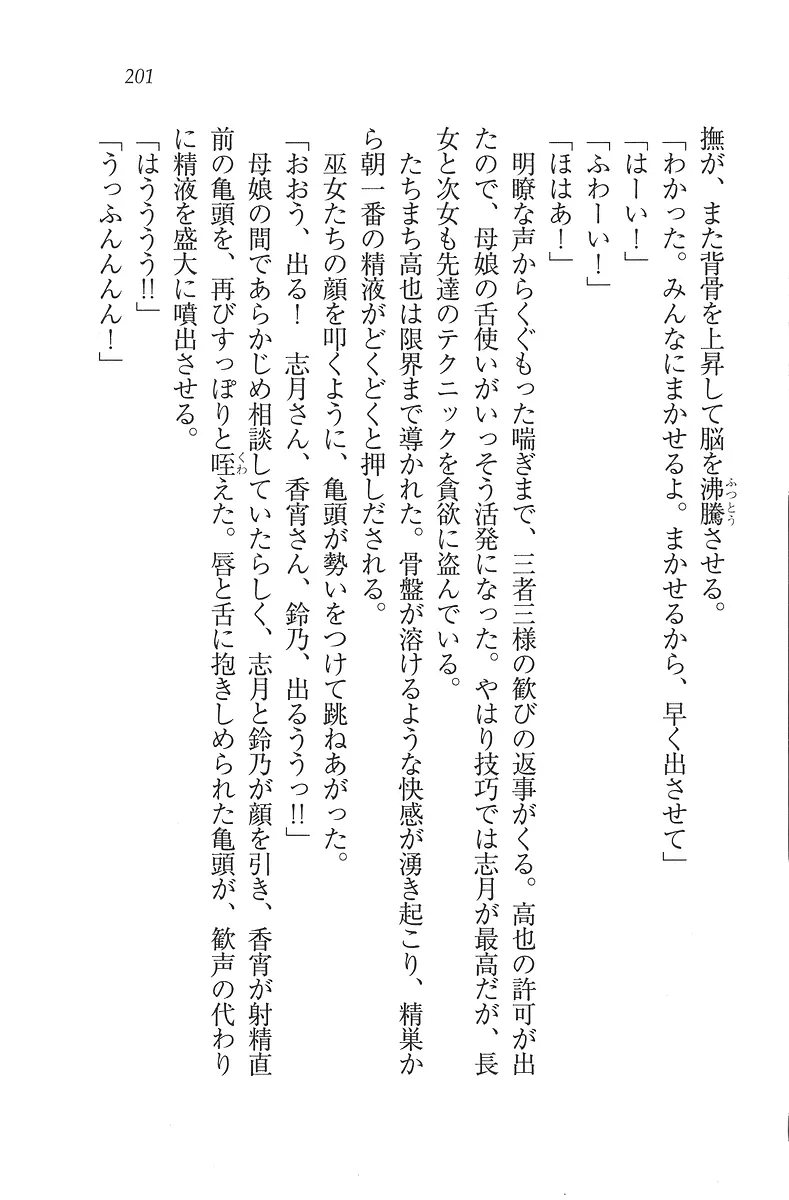 201
撫が、また背骨を上昇して脳を沸騰させる。
ふっとう
「わかった。みんなにまかせるよ。まかせるから、早く出させて」
「はーい！」
「ふわーい！」
「ほはあ！」
　明瞭な声からくぐもった喘ぎまで、三者三様の歓びの返事がくる。高也の許可が出
たので、母娘の舌使いがいっそう活発になった。やはり技巧では志月が最高だが、長
女と次女も先達のテクニックを貪欲に盗んでいる。
　たちまち高也は限界まで導かれた。骨盤が溶けるような快感が湧き起こり、精巣か
ら朝一番の精液がどくどくと押しだされる。
　巫女たちの顔を叩くように、亀頭が勢いをつけて跳ねあがった。
「おおう、出る！　志月さん、香宵さん、鈴乃、出るううっ!!」
　母娘の間であらかじめ相談していたらしく、志月と鈴乃が顔を引き、香宵が射精直
前の亀頭を、再びすっぽりと咥えた。唇と舌に抱きしめられた亀頭が、歓声の代わり
くわ
に精液を盛大に噴出させる。
「はうううう!!」
「うっふんんんん！」